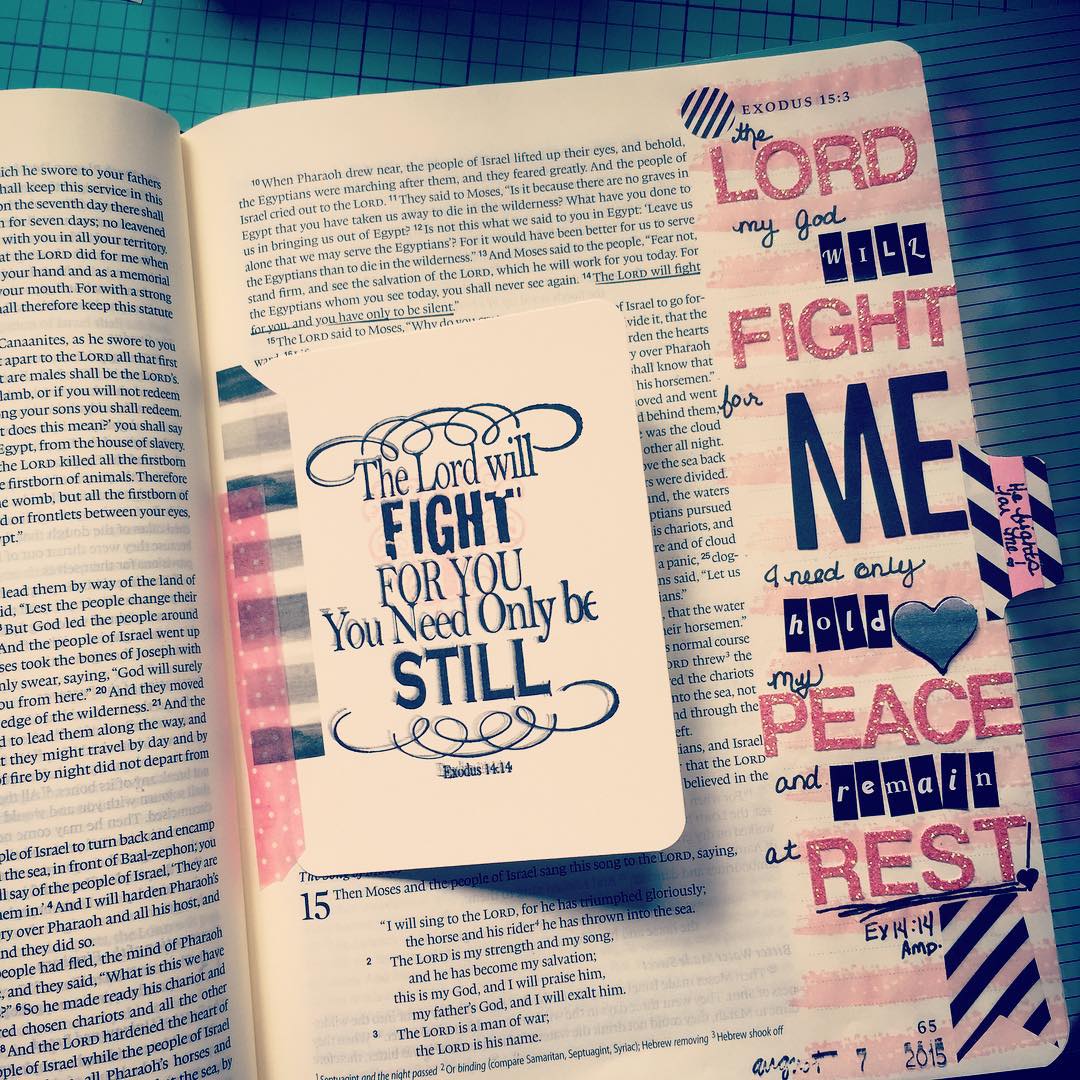 ich he swore to your fathers
hall keep this service in this
on the seventh day there shall
n for seven days; no leavened
with you in all your territory.
at the LORD did for me when
your hand and as a memorial
your mouth. For with a strong
all therefore keep this statute
Canaanites, as he swore to you
apart to the LORD all that first
t are males shall be the LORD's.
lamb, or if you will not redeem
ng your sons you shall redeem.
t does this mean?' you shall say
Egypt, from the house of slavery.
the LORD killed all the firstborn
e firstborn of animals. Therefore
he womb, but all the firstborn of
d or frontlets between your eyes,
ypt."
lead them by way of the land of
id, "Lest the people change their
But God led the people around
And the people of Israel went up
ses took the bones of Joseph with
nly swear, saying, "God will surely
ou from here." 20 And they moved
edge of the wilderness. 21 And the
d to lead them along the way, and
t they might travel by day and by
of fire by night did not depart from
ple of Israel to turn back and encamp
the sea, in front of Baal-zephon; you
ll say of the people of Israel, 'They are
hem in.' 4 And I will harden Pharaoh's
ory over Pharaoh and all his host, and
nd they did so.
people had fled, the mind of Pharaoh
, and they said, "What is this we have
?" 6 So he made ready his chariot and
red chosen chariots and all the other
8 And the LORD hardened the heart of
of Israel while the people of Israel
all Pharaoh's horses and
at the sea, by
10 When Pharaoh drew near, the people of Israel lifted up their eyes, and behold,
the Egyptians were marching after them, and they feared greatly. And the people of
Israel cried out to the LORD. 11 They said to Moses, "Is it because there are no graves in
Egypt that you have taken us away to die in the wilderness? What have you done to
us in bringing us out of Egypt? 12 Is not this what we said to you in Egypt: 'Leave us
alone that we may serve the Egyptians'? For it would have been better for us to serve
the Egyptians than to die in the wilderness." 13 And Moses said to the people, "Fear not,
stand firm, and see the salvation of the LORD, which he will work for you today. For
the Egyptians whom you see today, you shall never see again. 14 The LORD will fight
for you, and you have only to be silent."
15 The LORD said to Moses, "Why do you
of Israel to go for-
vide it, that the
rden the hearts
y over Pharaoh
shall know that
his horsemen."
oved and went
behind them,
was the cloud
other all night.
ove the sea back
s were divided.
nd, the waters
ptians pursued
s chariots, and
re and of cloud
a panic, 25 clog-
ns said, "Let us
ians."
that the water
eir horsemen."
s normal course
ORD threw3 the
into the sea, not
nd through the
eft.
ians, and Israel
that the LORD
believed in the
The Lord will
FIGHT
FOR YOU
You Need Only be
STILL
Exodus 14:14
15 Then Moses and the people of Israel sang this song to the LORD, saying,
"I will sing to the LORD, for he has triumphed gloriously;
the horse and his rider4 he has thrown into the sea.
2 The LORD is my strength and my song,
and he has become my salvation;
this is my God, and I will praise him,
my father's God, and I will exalt him.
3 The LORD is a man of war;
the LORD is his name.
1 Septuagint and the night passed 2 Or binding (compare Samaritan, Septuagint, Syriac); Hebrew removing 3 Hebrew shook off
EXODUS 15:3
the
LORD
my god
WILL
FIGHT
for
ME
I need only
hold
my
PEACE
and remain
at REST!
Ex 14:14
Amp.
65
august 7 2015
He fights